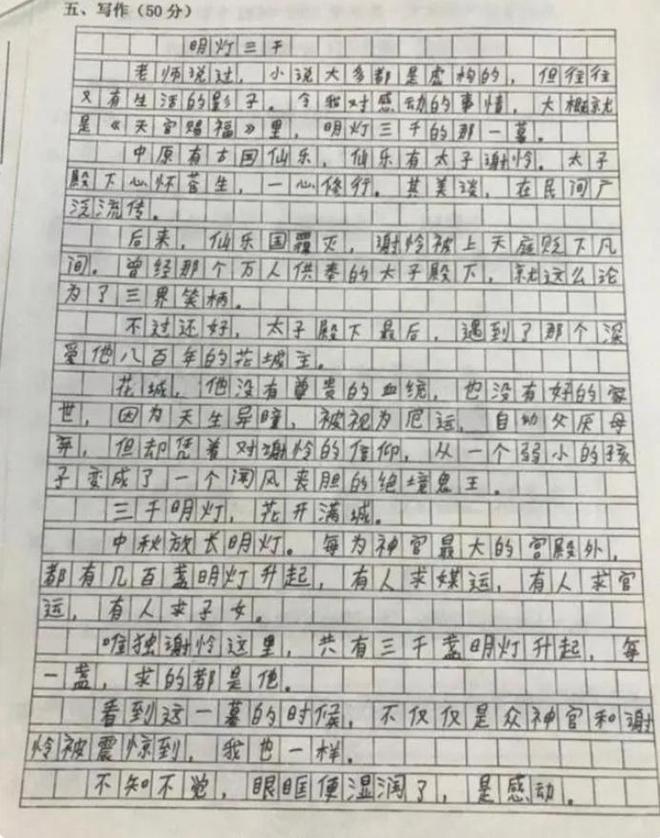 五、写作（50分）
明灯三千
老师说过，小说大多都是虚构的，但往往
又有生活的影子。令我对感动的事情，大概就
是《天官赐福》里，明灯三千的那一幕。
中原有古国仙乐，仙乐有太子谢怜。太子
殿下心怀苍生，一心修行。其美谈，在民间广
泛流传。
后来，仙乐国覆灭，谢怜被上天庭贬下凡
间。曾经那个万人供奉的太子殿下，就这么沦
为了三界笑柄。
不过还好，太子殿下最后，遇到了那个深
爱他八百年的花城主。
花城，他没有尊贵的血统，也没有好的家
世，因为天生异瞳，被视为厄运，自幼父厌母
弃，但却凭着对谢怜的信仰，从一个弱小的孩
子变成了一个闻风丧胆的绝境鬼王。
三千明灯，花开满城。
中秋放长明灯。每为神官最大的宫殿外，
都有几百盏明灯升起，有人求媒运，有人求官
运，有人求子女。
唯独谢怜这里，共有三千盏明灯升起，每
一盏，求的都是他。
看到这一幕的时候，不仅仅是众神官和谢
怜被震惊到，我也一样。
不知不觉，眼眶便湿润了，是感动。